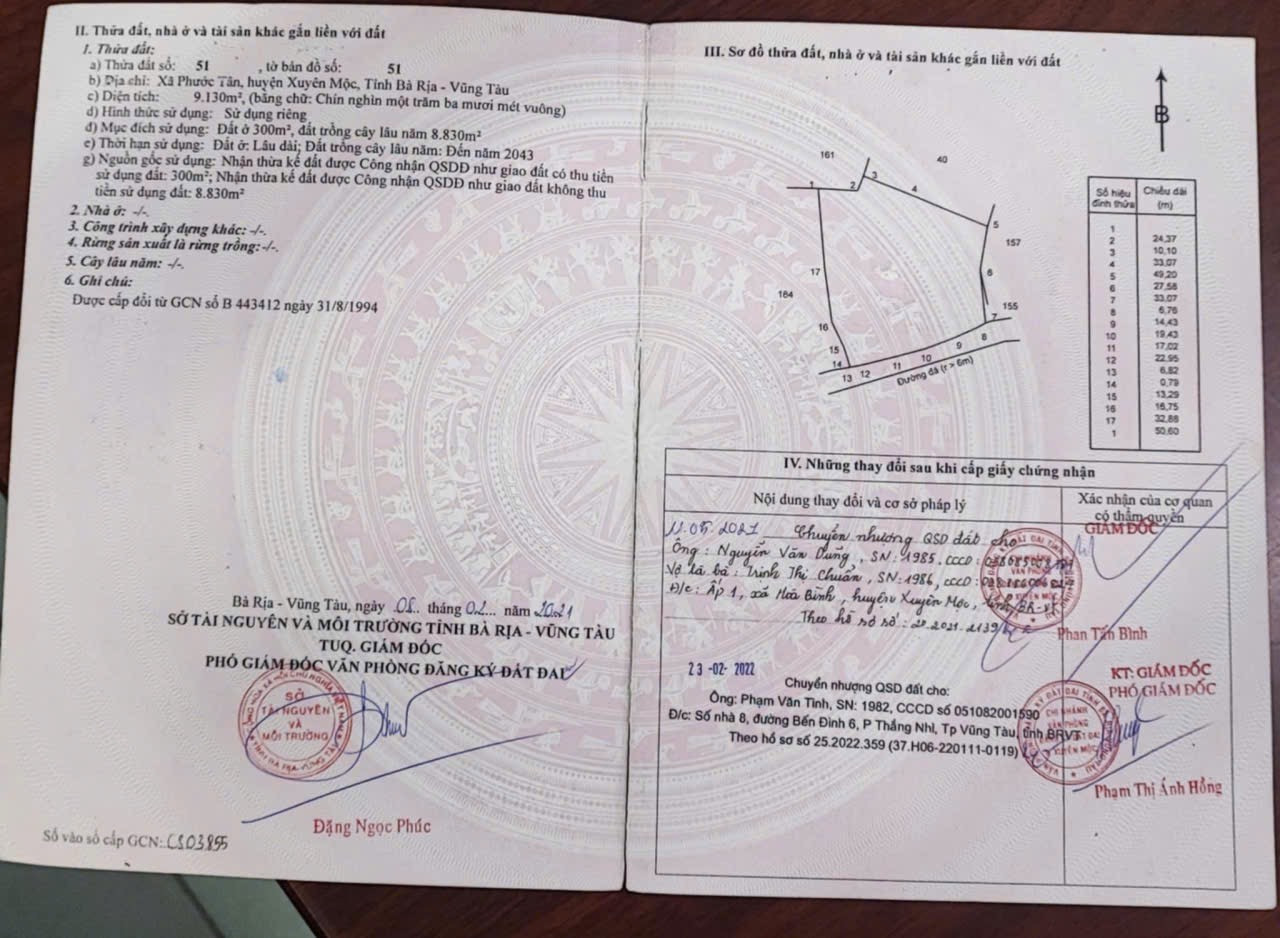 II. Thửa đất, nhà ở và tài sản khác gắn liền với đất
1. Thửa đất:
a) Thửa đất số: 51 , tờ bản đồ số: 51
b) Địa chỉ: Xã Phước Tân, huyện Xuyên Mộc, Tỉnh Bà Rịa - Vũng Tàu
c) Diện tích: 9.130m², (bằng chữ: Chín nghìn một trăm ba mươi mét vuông)
d) Hình thức sử dụng: Sử dụng riêng
đ) Mục đích sử dụng: Đất ở 300m², đất trồng cây lâu năm 8.830m²
e) Thời hạn sử dụng: Đất ở: Lâu dài; Đất trồng cây lâu năm: Đến năm 2043
g) Nguồn gốc sử dụng: Nhận thừa kế đất được Công nhận QSDĐ như giao đất có thu tiền
sử dụng đất: 300m²; Nhận thừa kế đất được Công nhận QSDĐ như giao đất không thu
tiền sử dụng đất: 8.830m²
2. Nhà ở: -/-.
3. Công trình xây dựng khác: -/-.
4. Rừng sản xuất là rừng trồng:-/-.
5. Cây lâu năm: -/-.
6. Ghi chú:
Được cấp đổi từ GCN số B 443412 ngày 31/8/1994
Bà Rịa - Vũng Tàu, ngày 05.. tháng 02... năm 2021
SỞ TÀI NGUYÊN VÀ MÔI TRƯỜNG TỈNH BÀ RỊA - VŨNG TÀU
TUQ. GIÁM ĐỐC
PHÓ GIÁM ĐỐC VĂN PHÒNG ĐĂNG KÝ ĐẤT ĐAI
SỞ
TÀI NGUYÊN
VÀ
MÔI TRƯỜNG
Đặng Ngọc Phúc
Số vào sổ cấp GCN: CS03855
III. Sơ đồ thửa đất, nhà ở và tài sản khác gắn liền với đất
B
161
40
1
2
3
4
5
157
6
17
184
155
7
16
8
9
15
10
14
11
13
12
Đường đá (r > 6m)
Số hiệu đỉnh thửa Chiều dài (m)
1
2 24,37
3 10,10
4 33,07
5 49,20
6 27,58
7 33,07
8 6,76
9 14,43
10 19,43
11 17,02
12 22,95
13 6,82
14 0,79
15 13,29
16 16,75
17 32,88
1 50,60
IV. Những thay đổi sau khi cấp giấy chứng nhận
Nội dung thay đổi và cơ sở pháp lý
Xác nhận của cơ quan
có thẩm quyền
GIÁM ĐỐC
11.05.2021 Chuyển nhượng QSD đất cho
Ông: Nguyễn Văn Dũng, SN: 1985, CCCD:
Vợ là bà: Trịnh Thị Chuẩn, SN: 1986, CCCD:
Đ/c: Ấp 1, xã Hoà Bình, huyện Xuyên Mộc, tỉnh BR-VT
Theo hồ sơ số: 20.2021.2139
Phan Tấn Bình
23-02-2022
KT: GIÁM ĐỐC
PHÓ GIÁM ĐỐC
Chuyển nhượng QSD đất cho:
Ông: Phạm Văn Tình, SN: 1982, CCCD số 051082001590
Đ/c: Số nhà 8, đường Bến Đình 6, P Thắng Nhì, Tp Vũng Tàu, tỉnh BRVT
Theo hồ sơ số 25.2022.359 (37.H06-220111-0119)
Phạm Thị Ánh Hồng